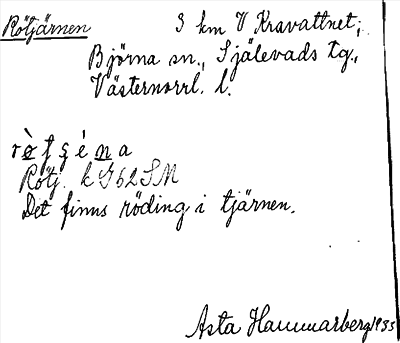 Rötjärnen 3 km V Kravattnet;
Björna sn., Själevads tg.,
Västernorrl. l.
rò̱ţşéṉa
Rötj. k G62SM
Det finns röding i tjärnen.
Asta Hammarberg 1935